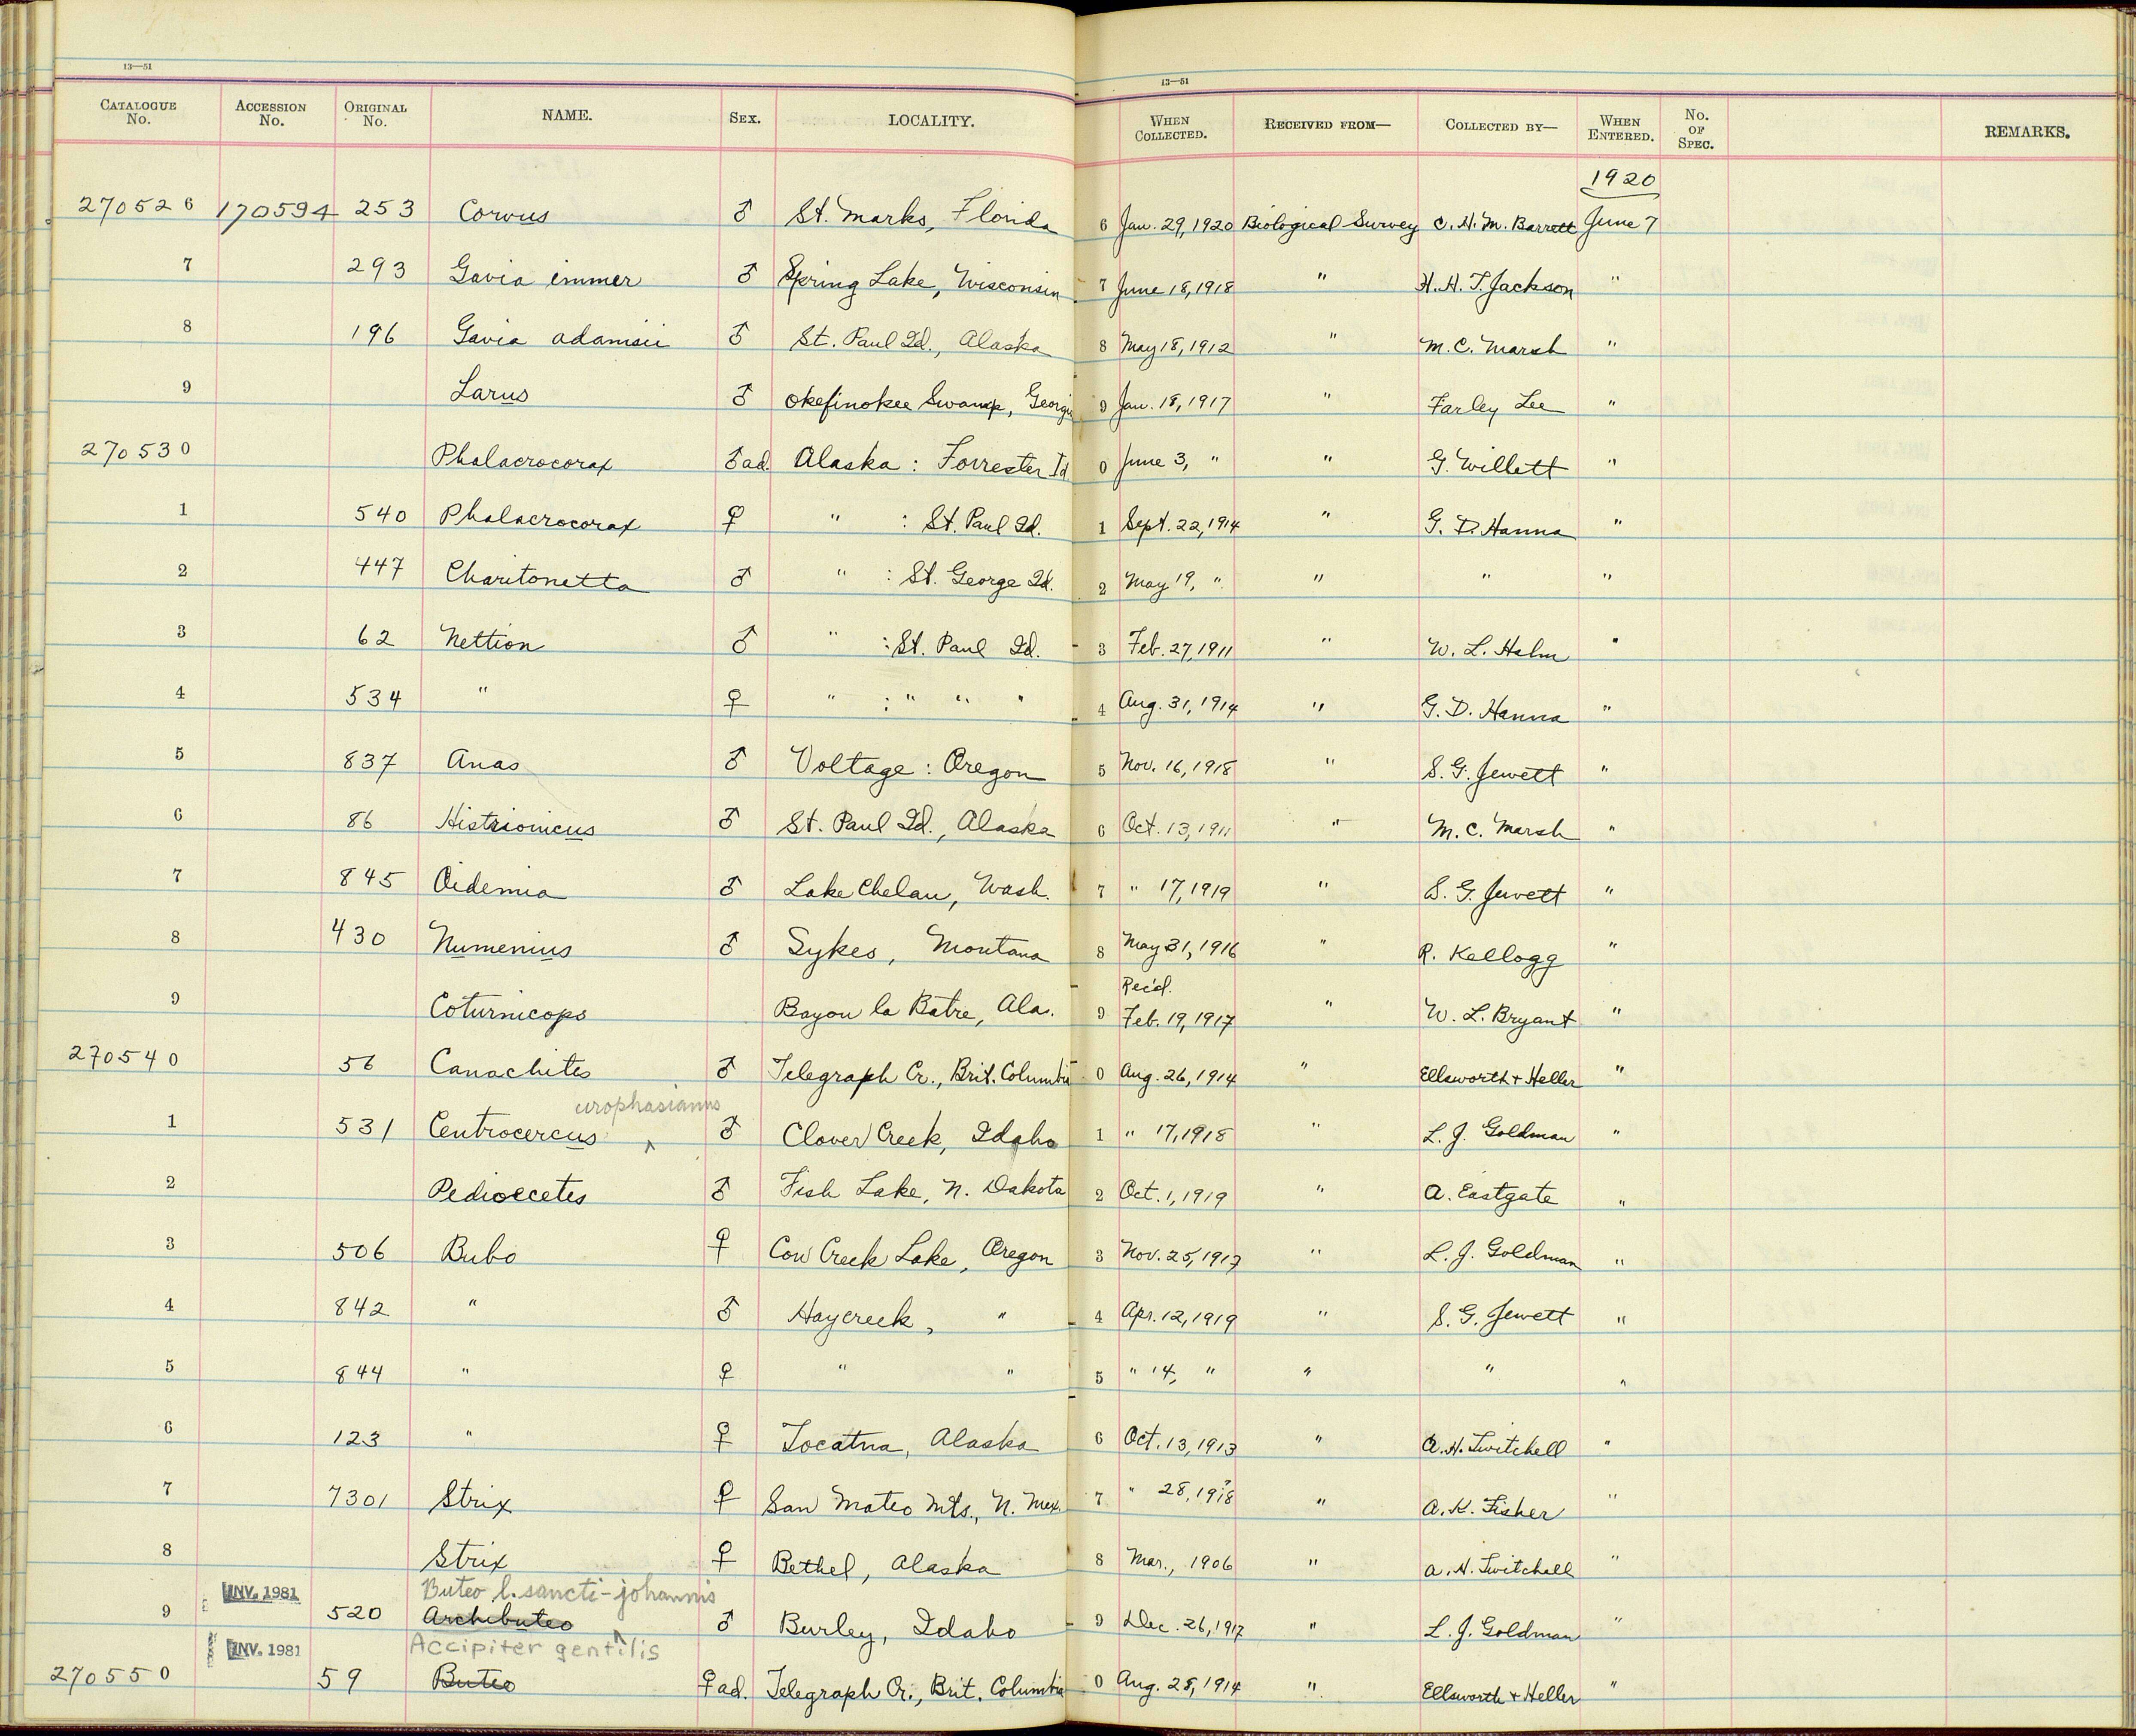 13—51 13—51
CATALOGUE No. ACCESSION No. ORIGINAL No. NAME. SEX. LOCALITY. WHEN COLLECTED. RECEIVED FROM— COLLECTED BY— WHEN ENTERED. No. OF SPEC. REMARKS.
1920
270526 170594 253 Corvus ♂ St. Marks, Florida 6 Jan. 29, 1920 Biological Survey C. H. M. Barrett June 7
7 293 Gavia immer ♂ Spring Lake, Wisconsin 7 June 18, 1918 " H. H. T. Jackson "
8 196 Gavia adamsii ♂ St. Paul Id., Alaska 8 May 18, 1912 " M. C. Marsh "
9 Larus ♂ Okefinokee Swamp, Georgia 9 Jan. 18, 1917 " Farley Lee "
270530 Phalacrocorax ♂ad. Alaska : Forrester Id. 0 June 3, " " G. Willett "
1 540 Phalacrocorax ♀ " : St. Paul Id. 1 Sept. 22, 1914 " G. D. Hanna "
2 447 Charitonetta ♂ " : St. George Id. 2 May 19, " " " "
3 62 Nettion ♂ " : St. Paul Id. 3 Feb. 27, 1911 " W. L. Hahn "
4 534 " ♀ " : " " " 4 Aug. 31, 1914 " G. D. Hanna "
5 837 Anas ♂ Voltage : Oregon 5 Nov. 16, 1918 " S. G. Jewett "
6 86 Histrionicus ♂ St. Paul Id., Alaska 6 Oct. 13, 1911 " M. C. Marsh "
7 845 Oidemia ♂ Lake Chelan, Wash. 7 " 17, 1919 " S. G. Jewett "
8 430 Numenius ♂ Sykes, Montana 8 May 31, 1916 " R. Kellogg "
Rec'd.
9 Coturnicops Bayou la Batre, Ala. 9 Feb. 19, 1917 " W. L. Bryant "
270540 56 Canachites ♂ Telegraph Cr., Brit. Columbia 0 Aug. 26, 1914 " Ellsworth & Heller "
urophasianus
1 531 Centrocercus ^ ♂ Clover Creek, Idaho 1 " 17, 1918 " L. J. Goldman "
2 Pedioecetes ♂ Fish Lake, N. Dakota 2 Oct. 1, 1919 " A. Eastgate "
3 506 Bubo ♀ Cow Creek Lake, Oregon 3 Nov. 25, 1917 " L. J. Goldman "
4 842 " ♂ Haycreek, " 4 Apr. 12, 1919 " S. G. Jewett "
5 844 " ♀ " " 5 " 14, " " " "
6 123 " ♀ Tocatna, Alaska 6 Oct. 13, 1913 " A. H. Twitchell "
7 7301 Strix ♀ San Mateo Mts., N. Mex. 7 " 28, 1918 ? " A. K. Fisher "
8 Strix ♀ Bethel, Alaska 8 Mar., 1906 " A. H. Twitchell "
INV. 1981 Buteo l. sancti-johannis
9 520 Archibuteo ^ ♂ Burley, Idaho 9 Dec. 26, 1917 " L. J. Goldman "
INV. 1981 Accipiter gentilis
270550 59 Buteo ♀ad. Telegraph Cr., Brit. Columbia 0 Aug. 28, 1914 " Ellsworth & Heller "